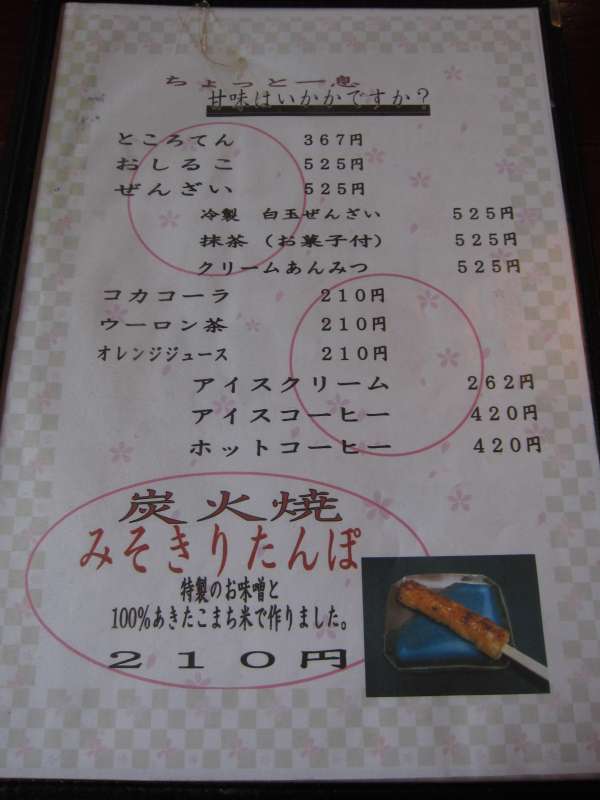 ちょっと一息
甘味はいかかですか？
ところてん　３６７円
おしるこ　５２５円
ぜんざい　５２５円
冷製　白玉ぜんざい　５２５円
抹茶（お菓子付）　５２５円
クリームあんみつ　５２５円
コカコーラ　２１０円
ウーロン茶　２１０円
オレンジジュース　２１０円
アイスクリーム　２６２円
アイスコーヒー　４２０円
ホットコーヒー　４２０円
炭火焼
みそきりたんぽ
特製のお味噌と
100%あきたこまち米で作りました。
２１０円